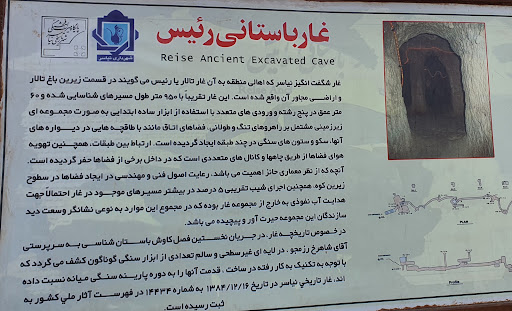 غار باستانی رئیس
Reise Ancient Excavated Cave
شهرداری نیاسر
غار شگفت انگیز نیاسر که اهالی منطقه به آن غار تالار یا رئیس می گویند در قسمت زیرین باغ تالار
و اراضی مجاور آن واقع شده است. این غار تقریباً با ۹۵۰ متر طول مسیرهای شناسایی شده و ۶۰
متر عمق در پنج رشته و ورودی های متعدد با استفاده از ابزار ساده ابتدایی به صورت مجموعه ای
زیرزمینی مشتمل بر راهروهای تنگ و طولانی، فضاهای اتاق مانند با طاقچه هایی در دیواره های
آنها، سکو و ستون های سنگی در چند طبقه ایجاد گردیده است. ارتباط بین طبقات، همچنین تهویه
هوای فضاها از طریق چاهها و کانال های متعددی است که در داخل برخی از فضاها حفر گردیده است.
آنچه که از نظر معماری حائز اهمیت می باشد، رعایت اصول فنی و مهندسی در ایجاد فضاها در سطوح
زیرین کوه، همچنین اجرای شیب تقریبی ۵ درصد در بیشتر مسیرهای موجود در غار احتمالاً جهت
هدایت آب نفوذی به خارج از مجموعه غار بوده که در مجموع این موارد به نوعی نشانگر وسعت دید
سازندگان این مجموعه حیرت آور و پیچیده می باشد.
در خصوص تاریخچه غار، در جریان نخستین فصل کاوش باستان شناسی به سرپرستی
آقای شاهرخ رزمجو، در لایه ای غیرسطحی و سالم تعدادی از ابزار سنگی گوناگون کشف می گردد که
با توجه به تکنیک به کار رفته در ساخت، قدمت آنها را به دوره پارینه سنگی میانه نسبت داده
اند. غار تاریخی نیاسر در تاریخ ۱۳۸۴/۱۲/۱۶ به شماره ۱۴۴۳۴ در فهرست آثار ملی کشور به
ثبت رسیده است.